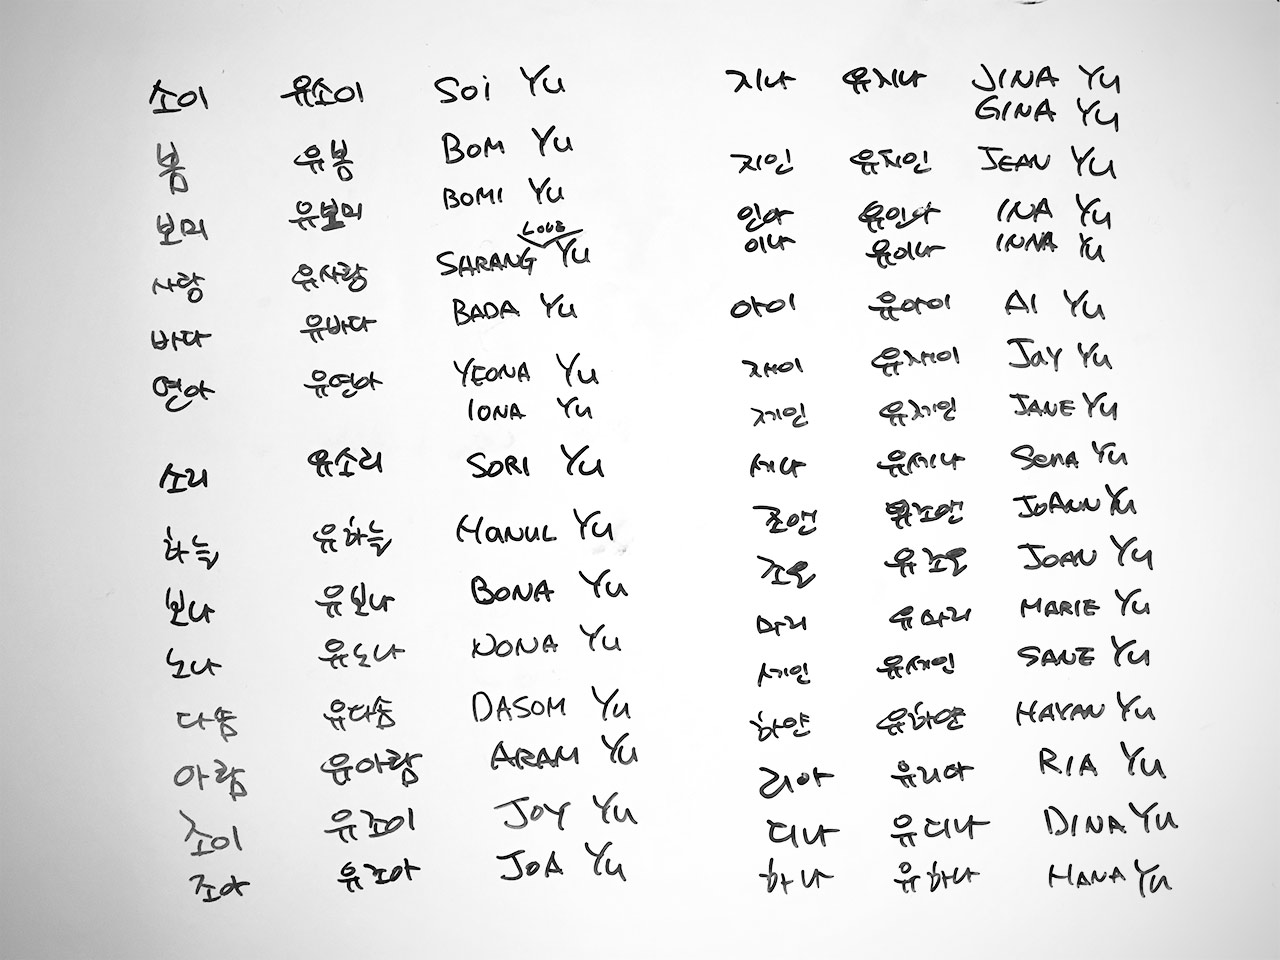 소이 유소이 Soi Yu
봄 유봄 BOM Yu
보미 유보미 BOMI Yu
LOVE
사랑 유사랑 SARANG Yu
바다 유바다 BADA Yu
연아 유연아 YEONA Yu
IONA Yu
소리 유소리 SORI Yu
하늘 유하늘 HANUL Yu
보나 유보나 BONA Yu
노나 유노나 NONA Yu
다솜 유다솜 DASOM Yu
아람 유아람 ARAM Yu
조이 유조이 JOY Yu
조아 유조아 JOA Yu
지나 유지나 JINA Yu
GINA Yu
지인 유지인 JEAN Yu
인아 유인아 INA Yu
이나 유이나 INNA Yu
아이 유아이 AI Yu
재이 유재이 JAY Yu
제인 유제인 JANE Yu
세나 유세나 SENA Yu
조앤 유조앤 JOANN Yu
조운 유조운 JOAN Yu
마리 유마리 MARIE Yu
세인 유세인 SANE Yu
하얀 유하얀 HAYAN Yu
리아 유리아 RIA Yu
디나 유디나 DINA Yu
하나 유하나 HANA Yu